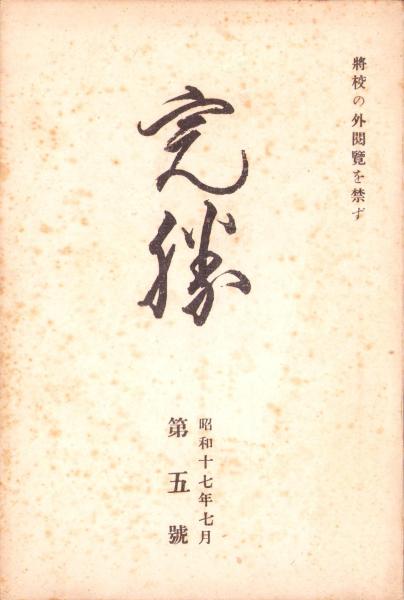 將校の外閲覽を禁ず
完勝
昭和十七年七月
第五號